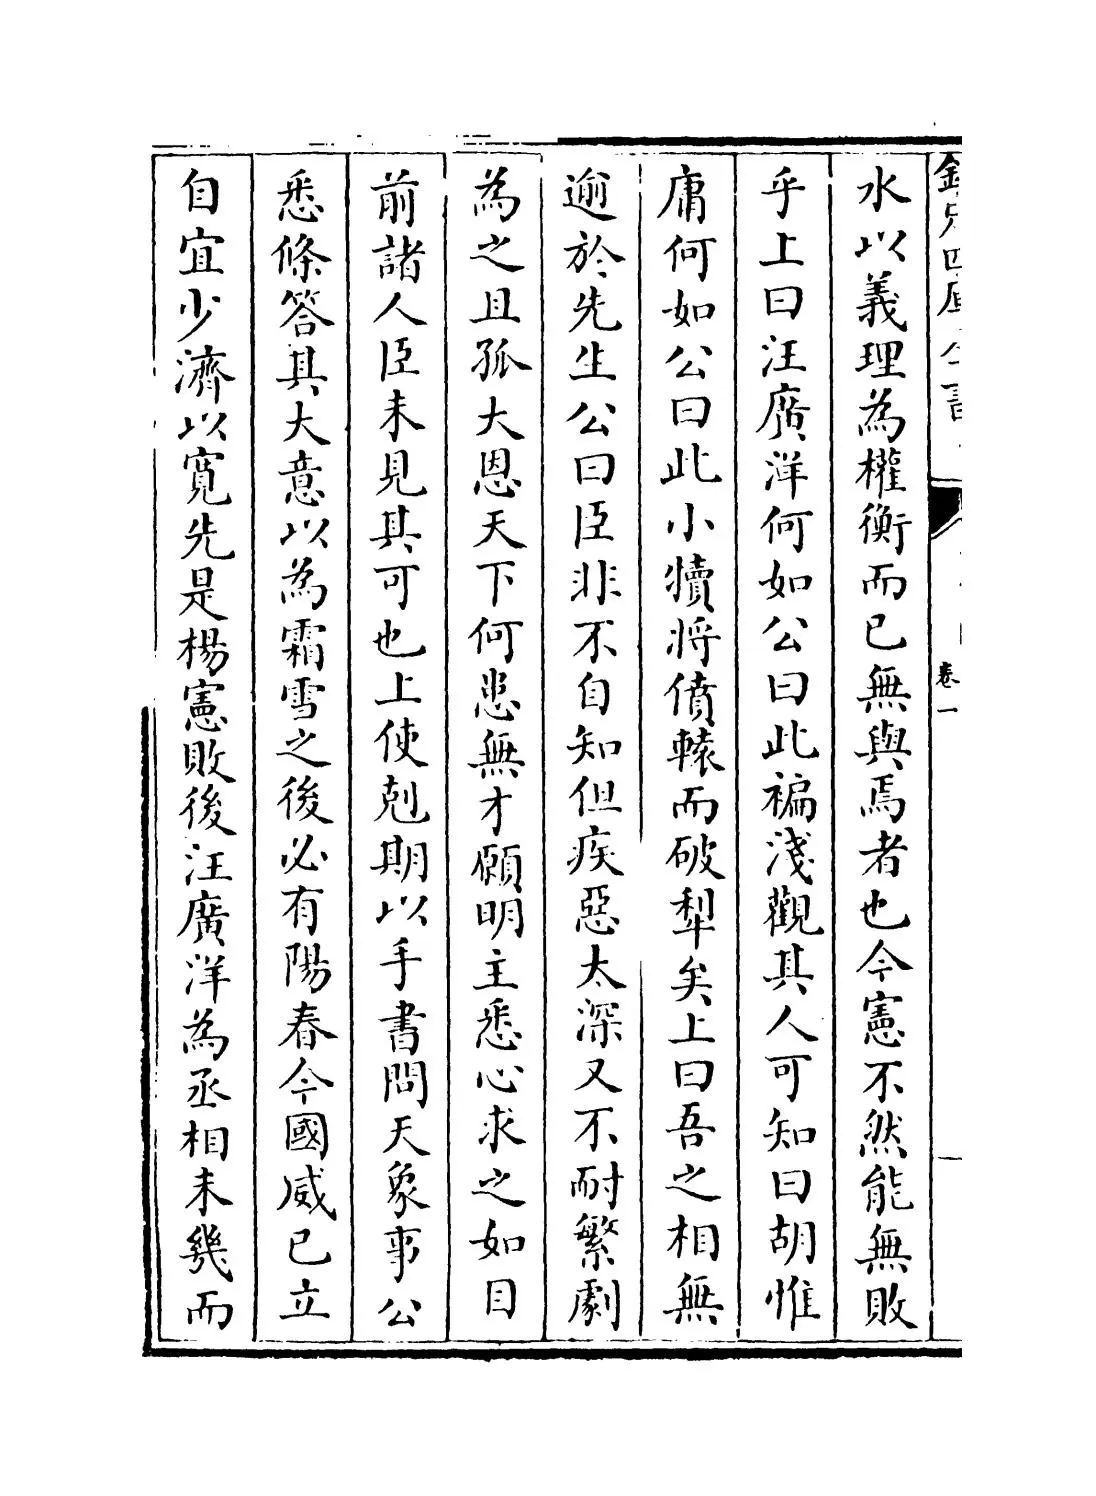 水以義理為權衡而已無與焉者也今憲不然能無敗
乎上曰汪廣洋何如公曰此褊淺觀其人可知曰胡惟
庸何如公曰此小犢將僨轅而破犁矣上曰吾之相無
逾於先生公曰臣非不自知但疾惡太深又不耐繁劇
為之且孤大恩天下何患無才願明主悉心求之如目
前諸人臣未見其可也上使剋期以手書問天象事公
悉條答其大意以為霜雪之後必有陽春今國威已立
自宜少濟以寬先是楊憲敗後汪廣洋為丞相未幾而
卷一